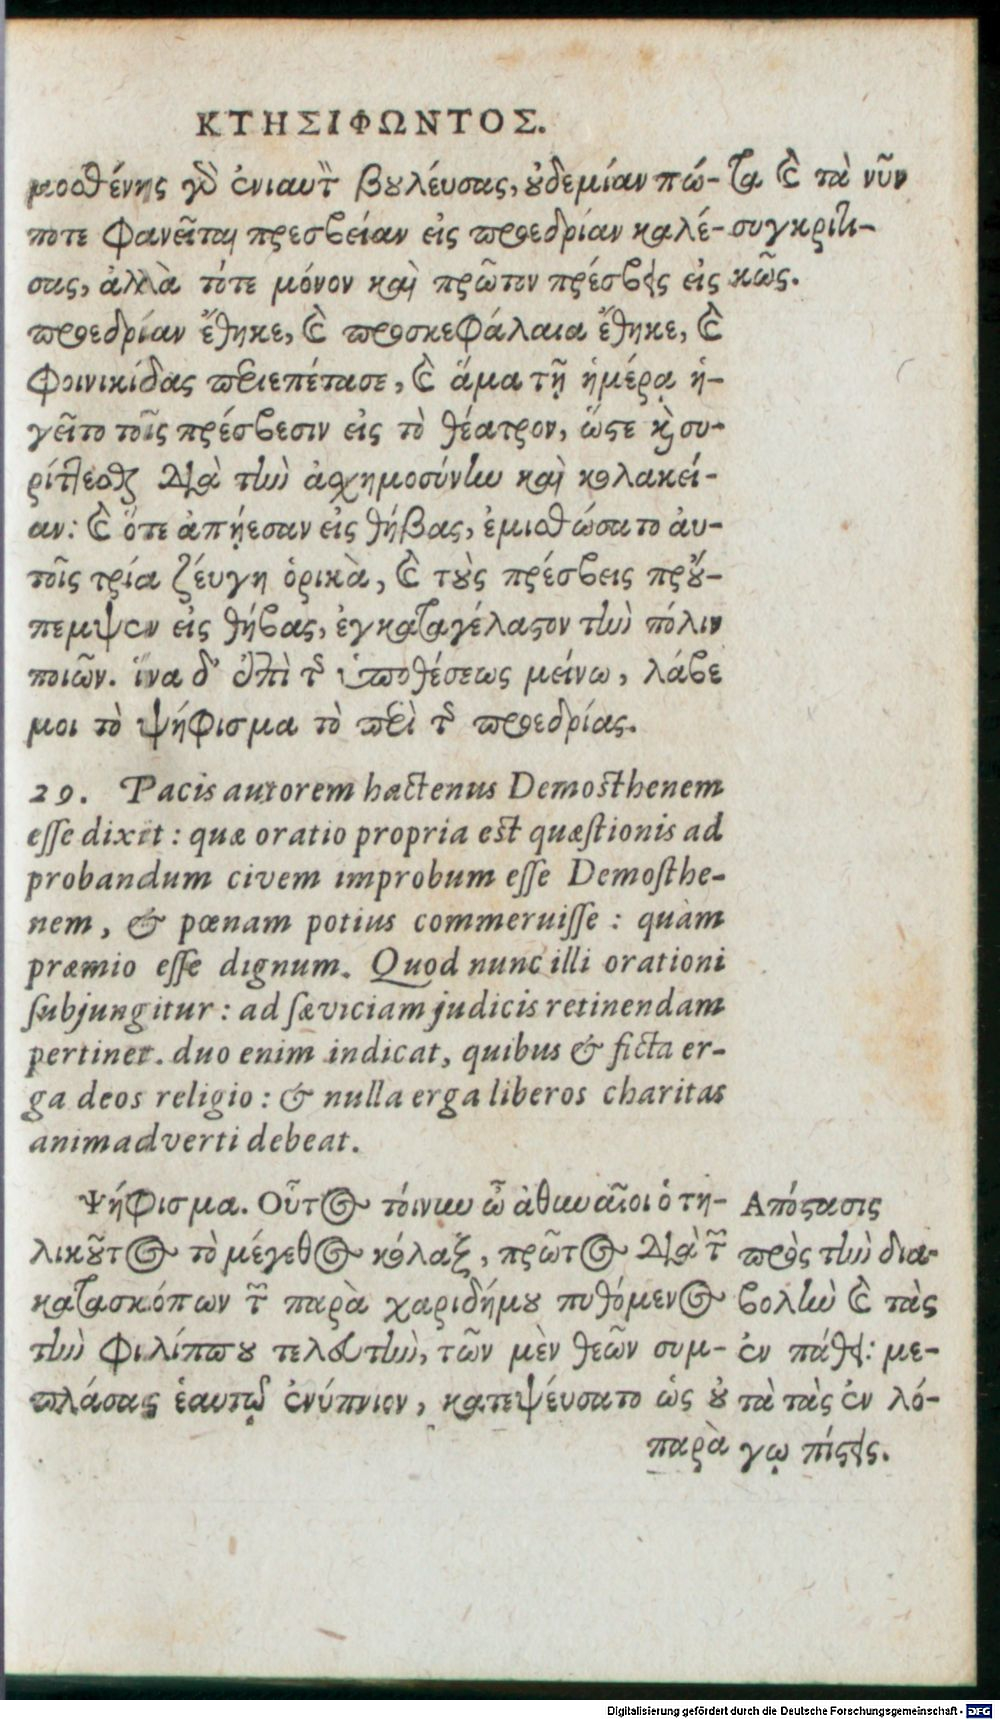 ΚΤΗΣΙΦΩΝΤΟΣ.
μοσθένης γὸ ἐνιαυτὸν βουλεύσας, οὐδεμίαν πώ-
ποτε φανεῖται πρεσβείαν εἰς προεδρίαν καλέ-
σας, ἀλλὰ τότε μόνον καὶ πρῶτον πρέσβεις εἰς
προεδρίαν ἔθηκε, καὶ προσκεφάλαια ἔθηκε, καὶ
φοινικίδας περιεπέτασε, καὶ ἅμα τῇ ἡμέρᾳ ἡ-
γεῖτο τοῖς πρέσβεσιν εἰς τὸ θέατρον, ὥστε καὶ συ-
ρίττεσθαι διὰ τὴν ἀσχημοσύνην καὶ κολακεί-
αν: καὶ ὅτε ἀπῄεσαν εἰς θήβας, ἐμισθώσατο ἀυ-
τοῖς τρία ζέυγη ὀρικὰ, καὶ τοὺς πρέσβεις προὔ-
πεμψεν εἰς θήβας, ἐγκαταγέλαστον τὴν πόλιν
ποιῶν. ἵνα δ' ἐπὶ τῆς ὑποθέσεως μείνω, λάβε
μοι τὸ ψήφισμα τὸ περὶ τῆς προεδρίας.
τα καὶ τὰ νῦν
συγκριτι-
κῶς.
29. Pacis autorem hactenus Demosthenem
esse dixit: quæ oratio propria est quæstionis ad
probandum civem improbum esse Demosthe-
nem, & pœnam potius commeruisse: quàm
præmio esse dignum. Quod nunc illi orationi
subjungitur: ad sæviciam judicis retinendam
pertinet. duo enim indicat, quibus & ficta er-
ga deos religio: & nulla erga liberos charitas
animadverti debeat.
Ψήφισμα. Οὗτος τόινυν ὦ ἀθηναῖοι ὁ τη-
λικοῦτος τὸ μέγεθος κόλαξ, πρῶτος διὰ τῶν
κατασκόπων τῶν παρὰ χαριδήμου πυθόμενος
τὴν Φιλίππου τελευτὴν, τῶν μὲν θεῶν συμ-
πλάσας ἑαυτῷ ἐνύπνιον, κατεψέυσατο ὡς οὐ
παρὰ
Απόστασις
πρὸς τὴν δια-
βολὴν καὶ τὰς
ἐν πάθει: με-
τὰ τὰς ἐν λό-
γῳ πίστεις.
Digitalisierung gefördert durch die Deutsche Forschungsgemeinschaft - DFG